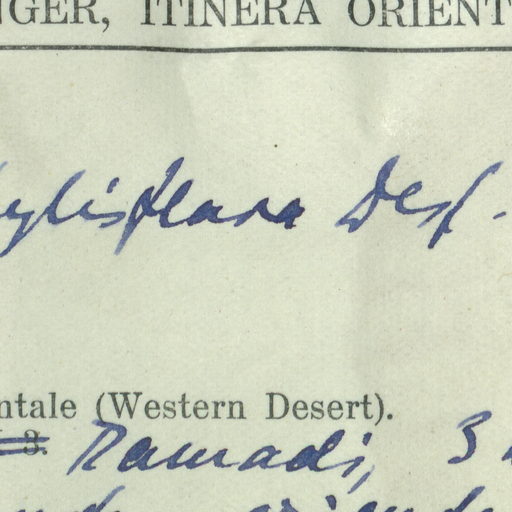 NGER, ITINERA ORIENT
ylisflara Desf.
ntale (Western Desert).
3. Ramadi, 3